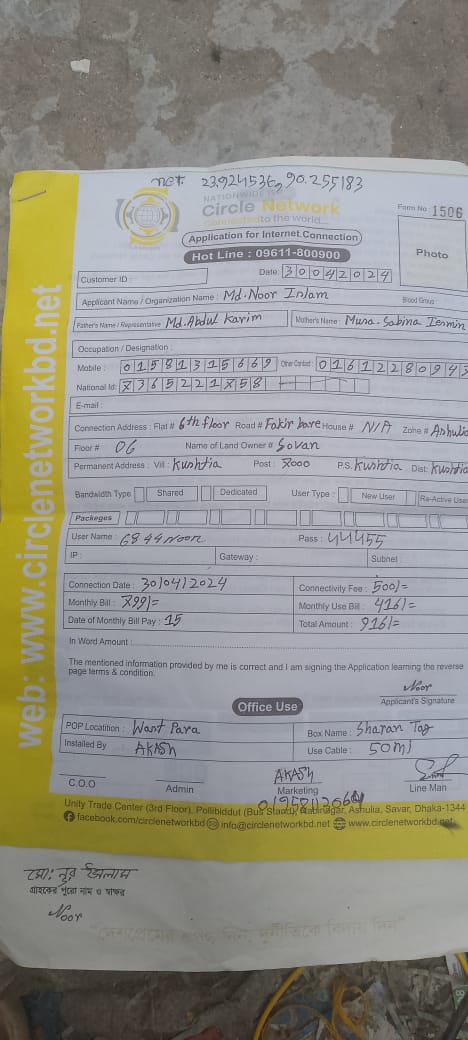 net. 23.924536, 90.255183
NATIONWIDE ISP
Circle Network
Connected to the world...
Form No : 1506
Application for Internet Connection
Hot Line : 09611-800900
Photo
Date: 30042024
Customer ID :
Applicant Name / Organization Name : Md. Noor Inlam
Blood Group :
Father's Name / Representative Md. Abdul Karim Mother's Name :
Occupation / Designation :
Mobile : 01581315669 Other Contact :
National Id:
E-mail :
Connection Address : Flat # 6th floor Road # House # N/A Zone # Ashulia
Floor # 06 Name of Land Owner # Sovan
Permanent Address : Vill : Kushtia Post : 7000 P.S. Kushtia Dist: Kushtia
Bandwidth Type Shared Dedicated User Type : New User Re-Active User
Packeges
User Name : Pass : 44455
IP : Gateway : Subnel :
Connection Date : 30/04/2024 Connectivity Fee : 500/=
Monthly Bill : 799/= Monthly Use Bill : 416/=
Date of Monthly Bill Pay : 15 Total Amount : 916/=
In Word Amount :
The mentioned information provided by me is correct and I am signing the Application learning the reverse
page terms & condition.
Noor
Applicant's Signature
Office Use
POP Locatition : Want Para Box Name : Sharan Tag
Installed By AKASh Use Cable : 50ml
AKASh
C.O.O Admin Marketing Line Man
Unity Trade Center (3rd Floor), Pollibiddut (Bus Stand), Nabinagar, Ashulia, Savar, Dhaka-1344
facebook.com/circlenetworkbd info@circlenetworkbd.net www.circlenetworkbd.net
web: www.circlenetworkbd.net
মো: নুর ইসলাম
গ্রাহকের পুরো নাম ও স্বাক্ষর
Noor